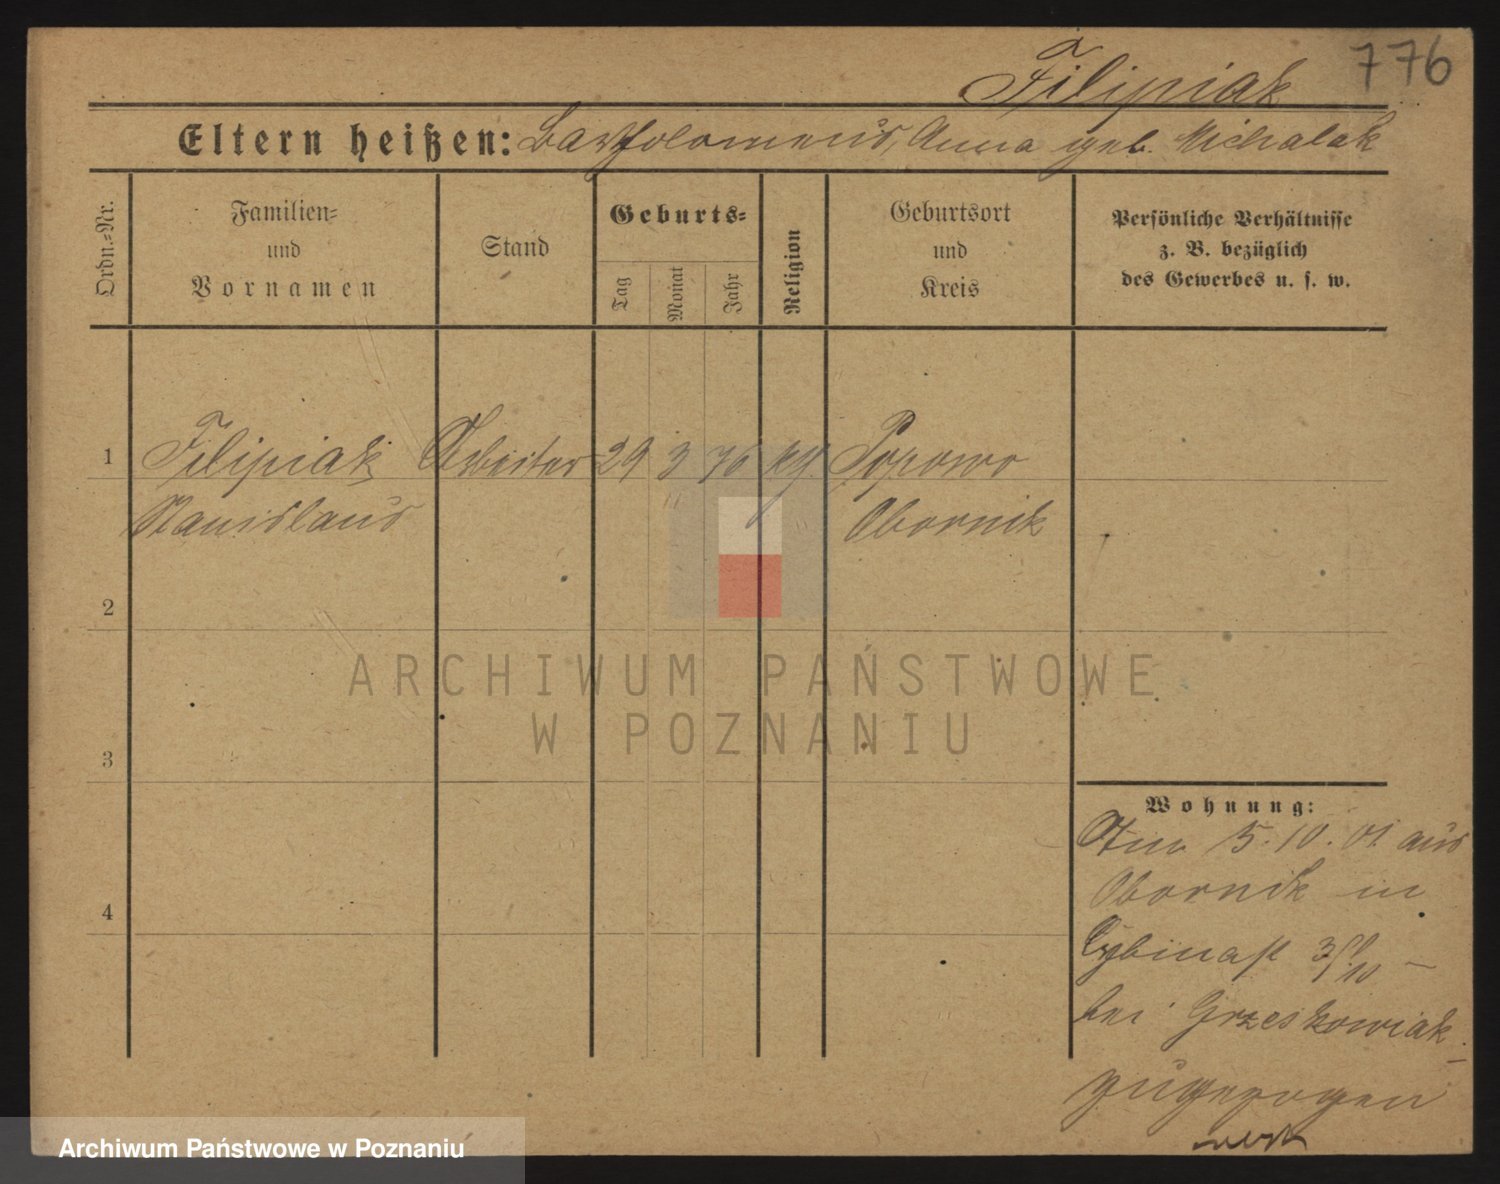 776
Filipiak
Eltern heißen: Bartholomeus, Anna geb. Michalak
Ordn.-Nr.
Familien-
und
Vornamen
Stand
Geburts-
Tag
Monat
Jahr
Religion
Geburtsort
und
Kreis
Persönliche Verhältnisse
z. B. bezüglich
des Gewerbes u. s. w.
1 Filipiak Arbeiter 29 3 76 Popowo
Stanislaus Obornik
2
3
4
Wohnung:
5.10.01 aus
Obornik in
Cybinast
bei Grzeskowiak
zugezogen
ARCHIWUM PAŃSTWOWE
W POZNANIU
Archiwum Państwowe w Poznaniu